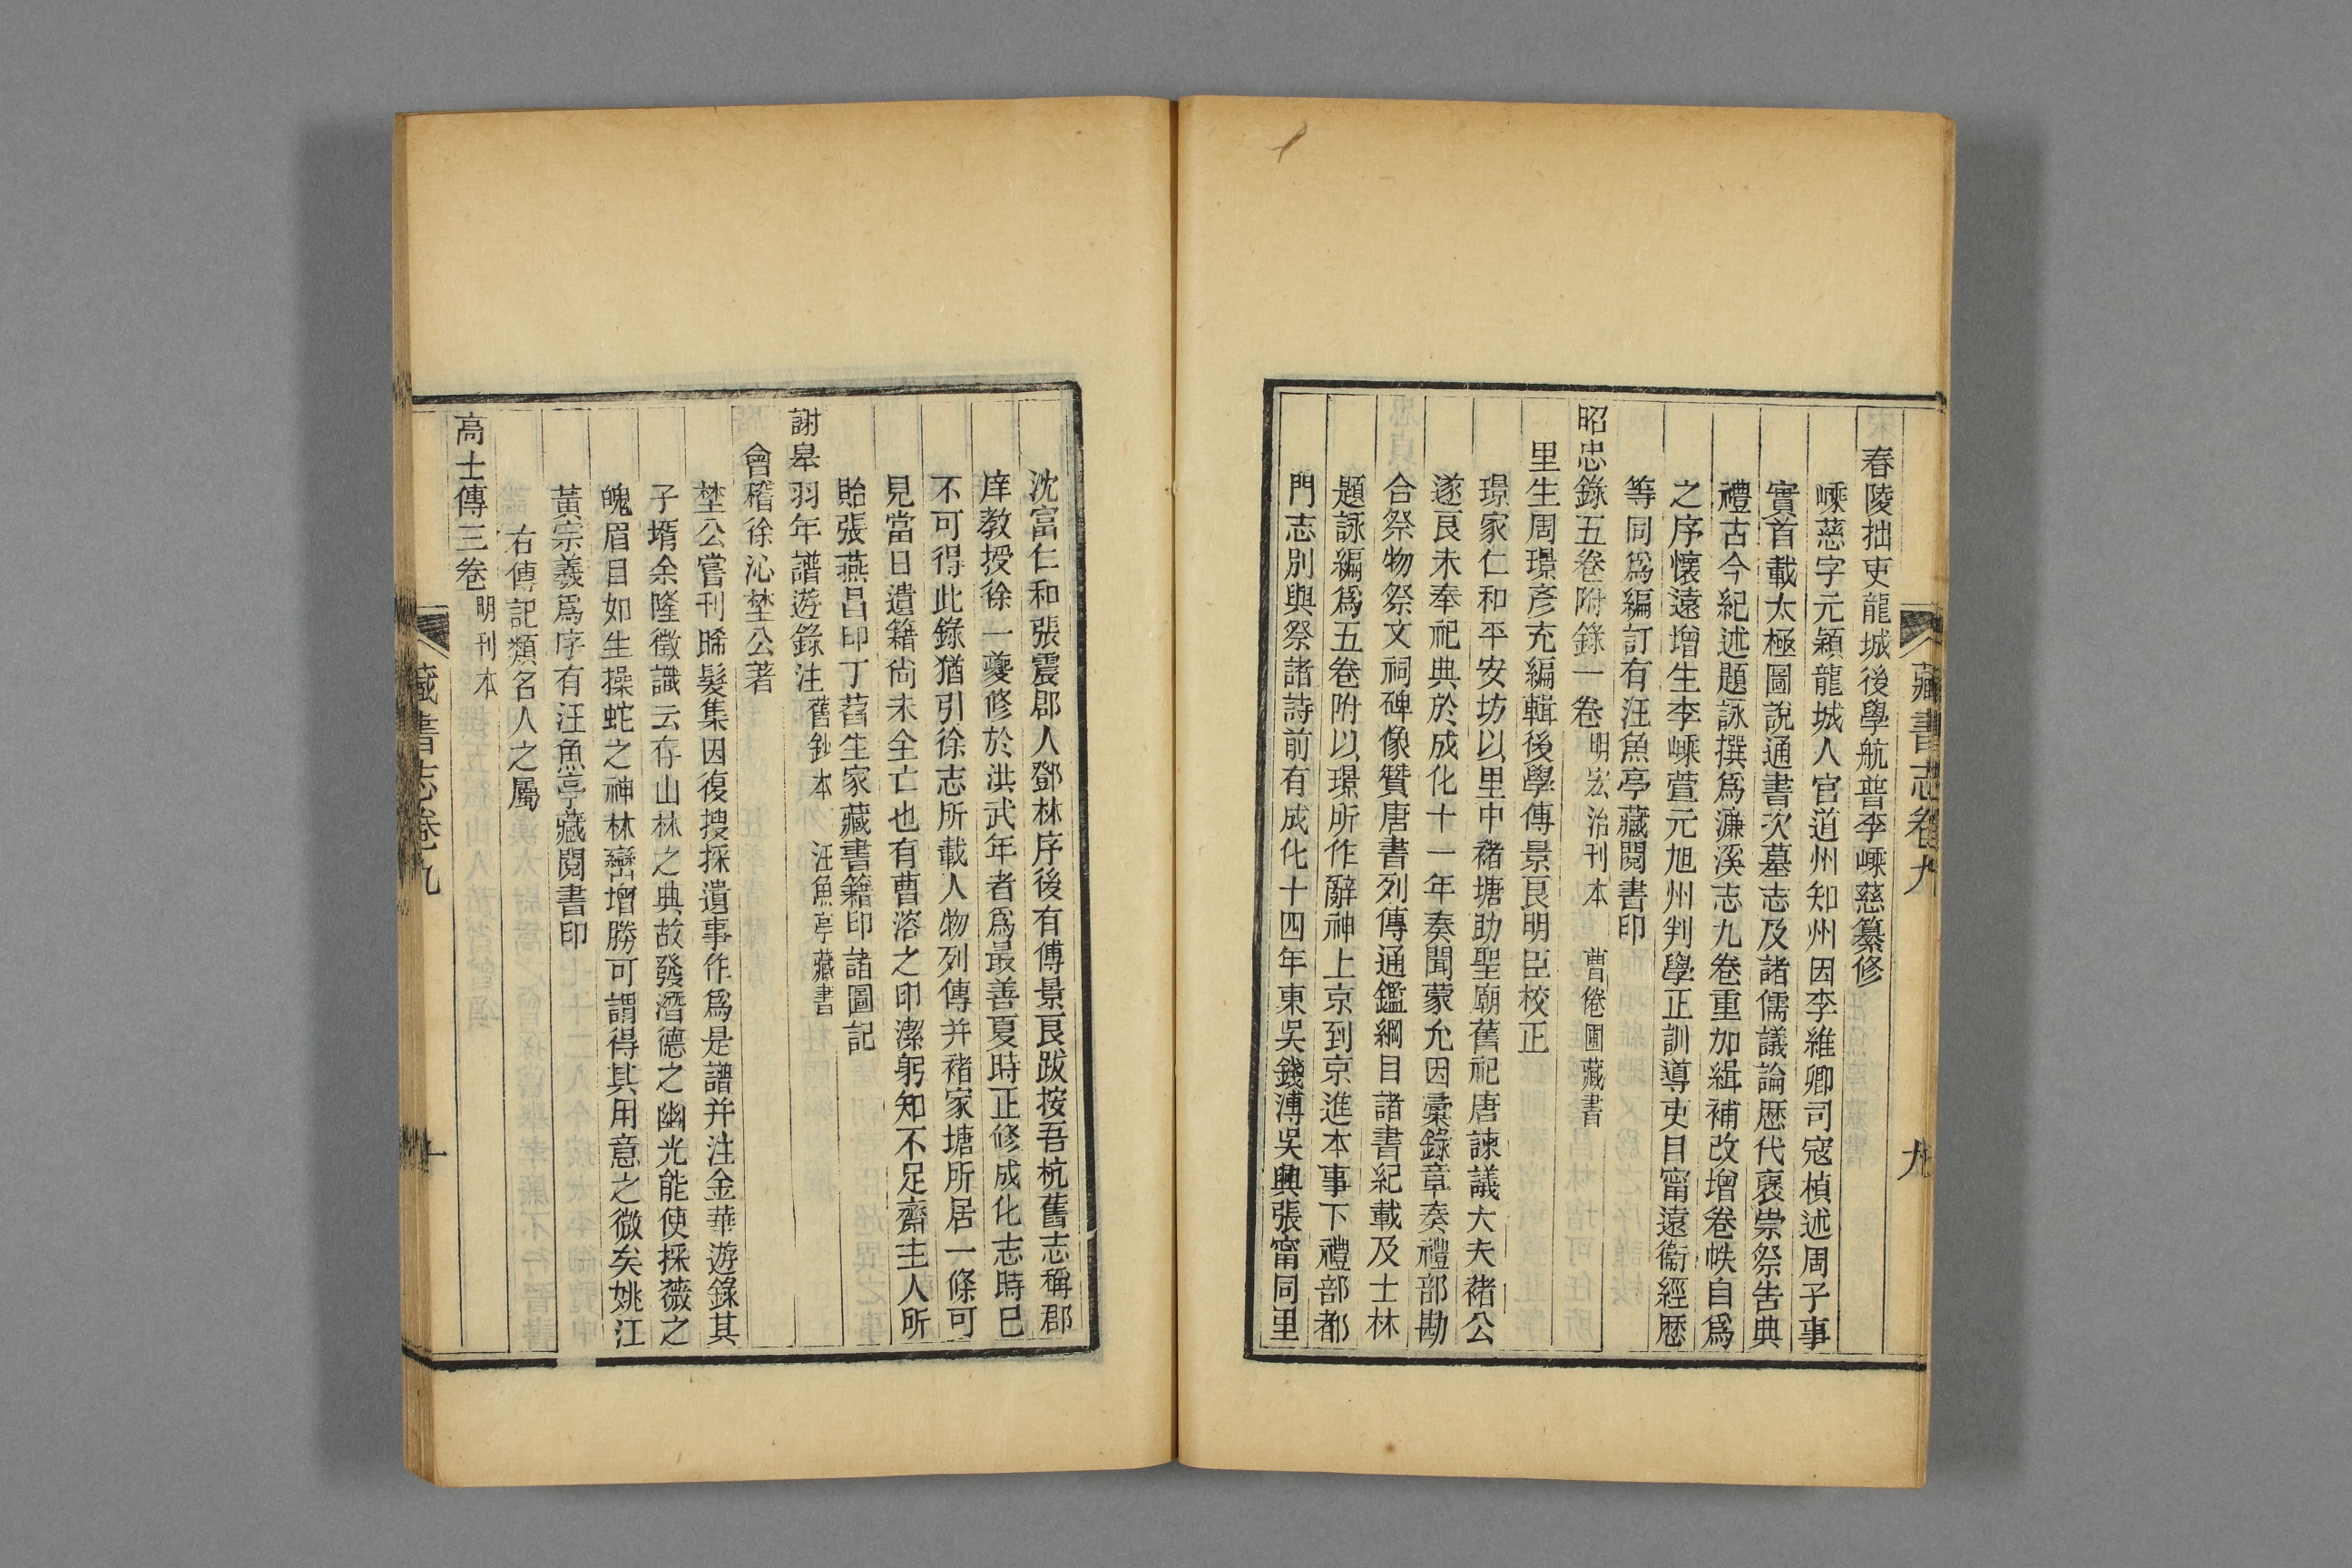 春陵拙吏龍城後學航普李嵊慈纂修
嵊慈字元穎龍城人官道州知州因李維卿司寇楨述周子事
實首載太極圖說通書次墓志及諸儒議論歷代褒崇祭告典
禮古今紀述題詠撰爲濂溪志九卷重加緝補改增卷帙自爲
之序懷遠增生李嵊萱元旭州判學正訓導吏目甯遠衞經歷
等同爲編訂有汪魚亭藏閱書印
昭忠錄五卷附錄一卷 明宏治刊本 曹倦圃藏書
里生周璟彥充編輯後學傅景良明臣校正
璟家仁和平安坊以里中褚塘助聖廟舊祀唐諫議大夫褚公
遂良未奉祀典於成化十一年奏聞蒙允因彙錄章奏禮部勘
合祭物祭文祠碑像贊唐書列傳通鑑綱目諸書紀載及士林
題詠編爲五卷附以璟所作辭神上京到京進本事下禮部都
門志別與祭諸詩前有成化十四年東吳錢溥吳興張甯同里
藏書志卷九
九
沈富仁和張震郡人鄧林序後有傅景良跋按吾杭舊志稱郡
庠教授徐一夔修於洪武年者爲最善夏時正修成化志時已
不可得此錄猶引徐志所載人物列傳并褚家塘所居一條可
見當日遺籍尙未全亡也有曹溶之印潔躬知不足齋主人所
貽張燕昌印丁菩生家藏書籍印諸圖記
謝皋羽年譜遊錄注 舊鈔本 汪魚亭藏書
會稽徐沁埜公著
埜公嘗刊晞髮集因復搜採遺事作爲是譜并注金華遊錄其
子壻余隆徵識云存山林之典故發潛德之幽光能使採薇之
魄眉目如生操蛇之神林巒增勝可謂得其用意之微矣姚江
黃宗羲爲序有汪魚亭藏閱書印
右傳記類名人之屬
高士傳三卷 明刊本
藏書志卷九
十